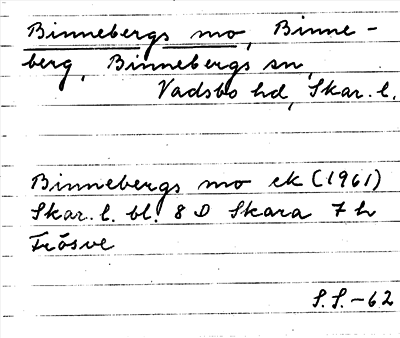 Binnebergs mo, Binne-
berg, Binnebergs sn,
Vadsbo hd, Skar. l.
Binnebergs mo ek (1961)
Skar. l. bl. 8 D Skara 7 h
Frösve
S.S.-62